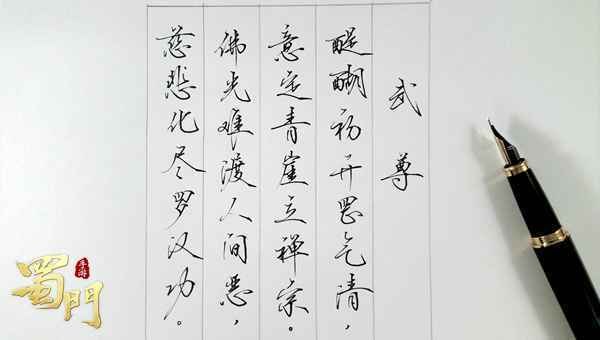 武尊
醍醐初开罡气清，
意定青崖立禅宗。
佛光难渡人间恶，
慈悲化尽罗汉功。
蜀門
手游